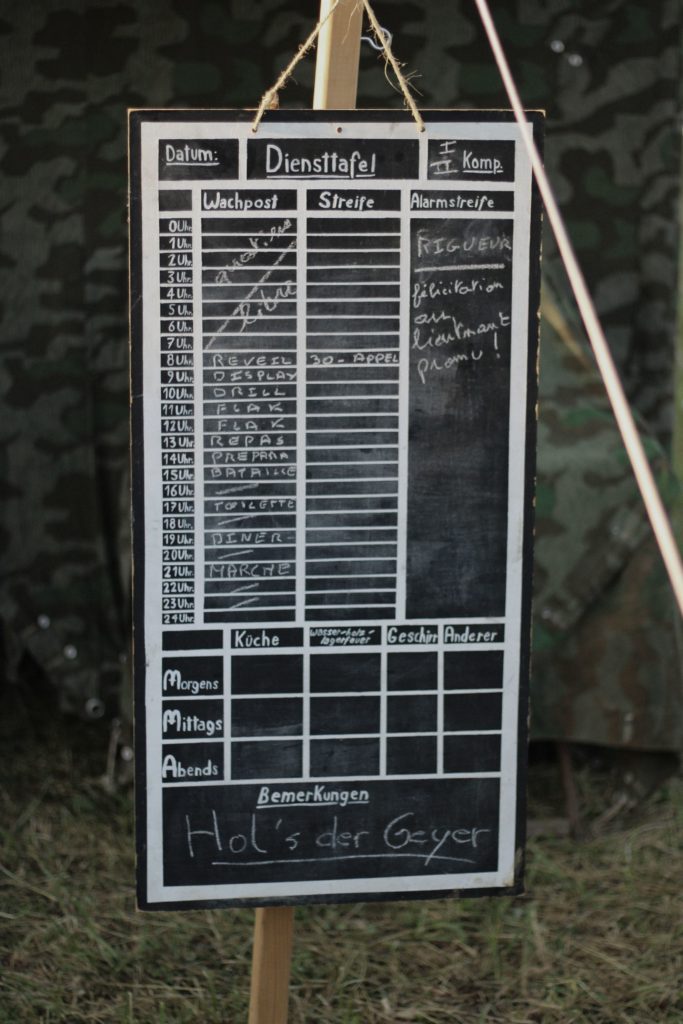 Datum:
Diensttafel
I
II Komp.
Wachpost Streife Alarmstreife
0Uhr.
1Uhr.
2Uhr.
3Uhr.
4Uhr.
5Uhr.
6Uhr.
7Uhr.
quartier
libre
RIGUEUR
félicitation
au
lieutenant
promu !
8Uhr. REVEIL 30 - APPEL
9Uhr. DISPLAY
10Uhr. DRILL
11Uhr. FLAK
12Uhr. FLAK
13Uhr. REPAS
14Uhr. PREPARA
15Uhr. BATAILLE
16Uhr.
17Uhr. TOILETTE
18Uhr.
19Uhr. DINER -
20Uhr.
21Uhr. MARCHE
22Uhr.
23Uhr.
24Uhr.
Küche Wasser-holz-
lagerfeuer Geschirr Anderer
Morgens
Mittags
Abends
Bemerkungen
Hol's der Geyer